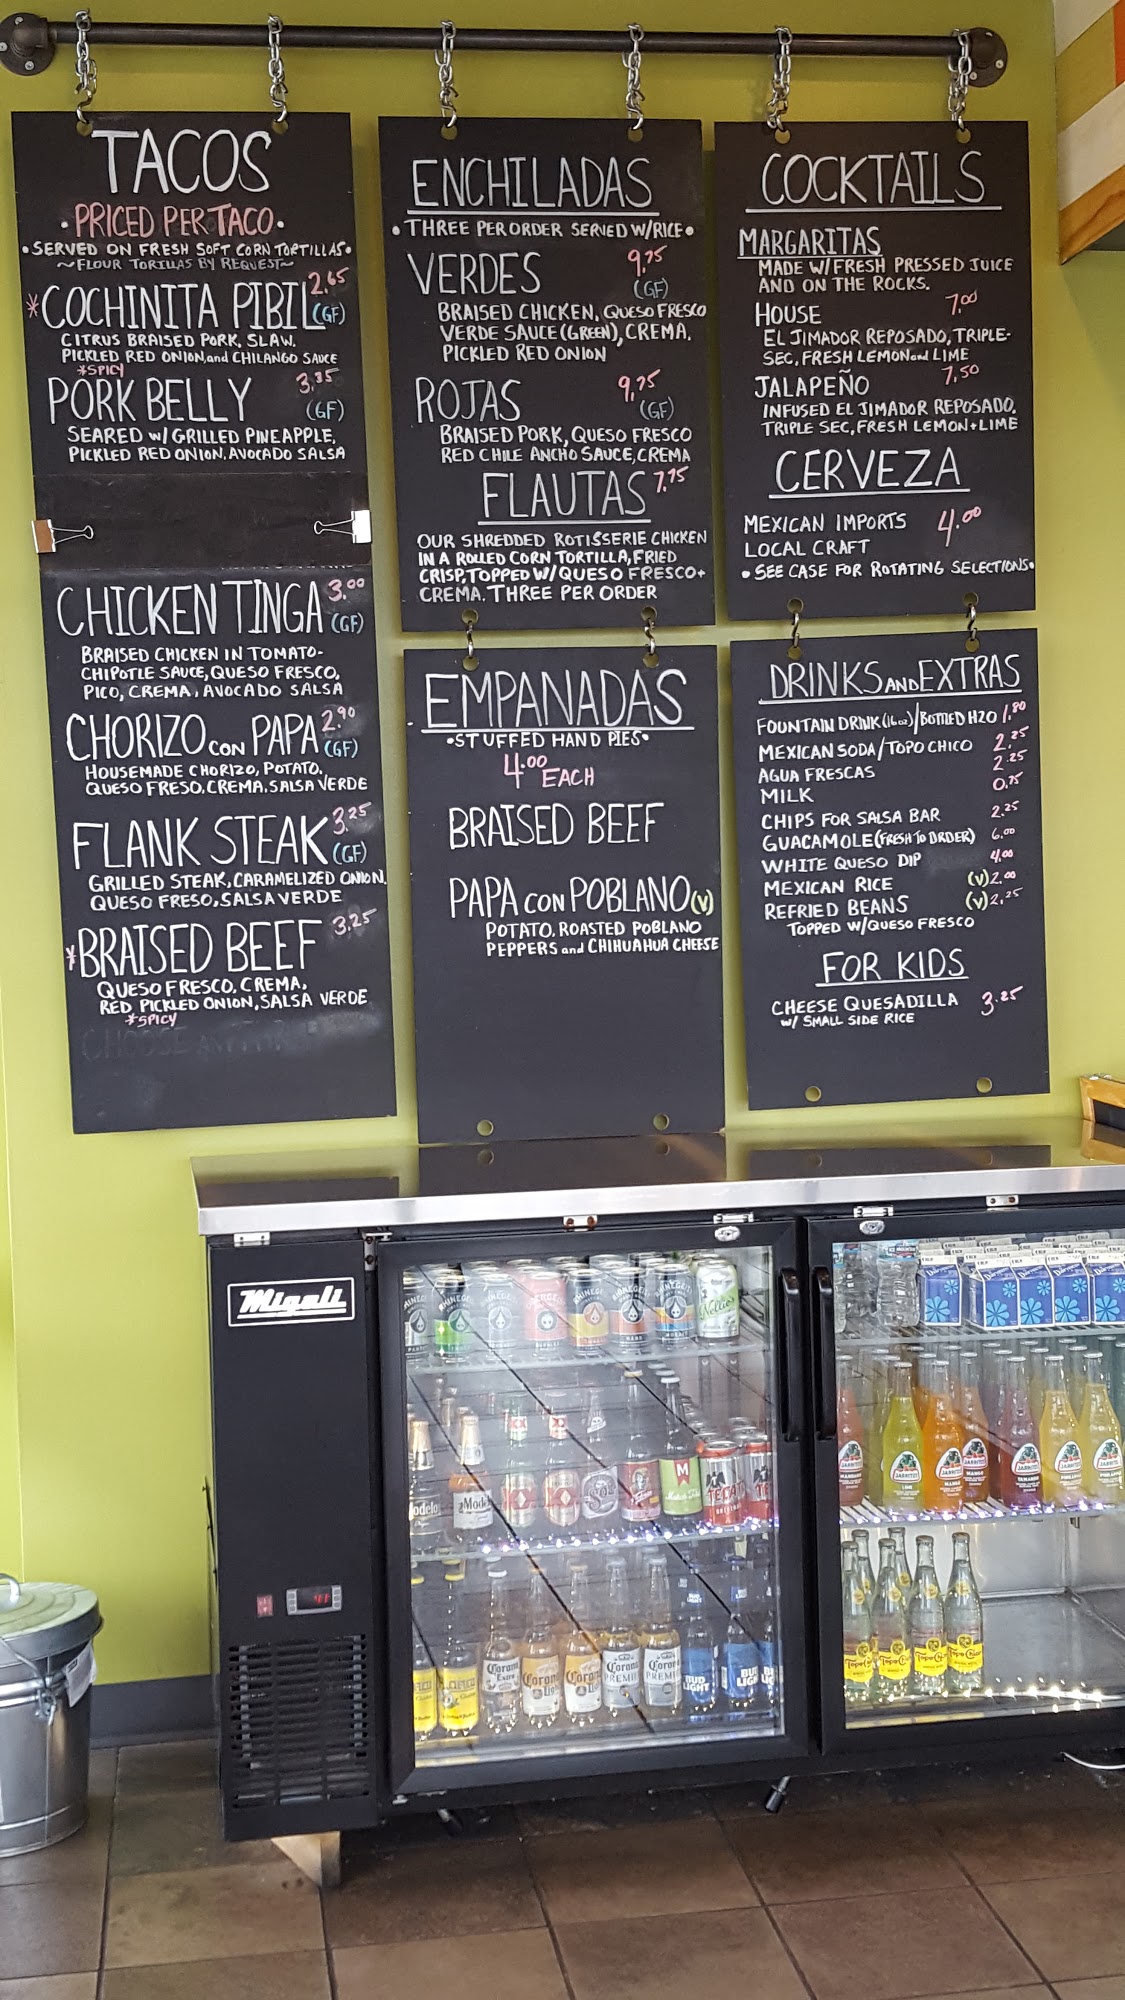 TACOS
•PRICED PER TACO•
•SERVED ON FRESH SOFT CORN TORTILLAS•
~FLOUR TORILLAS BY REQUEST~
*COCHINITA PIBIL 2.65
(GF)
CITRUS BRAISED PORK, SLAW,
PICKLED RED ONION, and CHILANGO SAUCE
*SPICY
PORK BELLY 3.35
(GF)
SEARED W/ GRILLED PINEAPPLE,
PICKLED RED ONION, AVOCADO SALSA
CHICKEN TINGA 3.00
(GF)
BRAISED CHICKEN IN TOMATO-
CHIPOTLE SAUCE, QUESO FRESCO,
PICO, CREMA, AVOCADO SALSA
CHORIZO CON PAPA 2.90
(GF)
HOUSEMADE CHORIZO, POTATO,
QUESO FRESO, CREMA, SALSA VERDE
FLANK STEAK 3.25
(GF)
GRILLED STEAK, CARAMELIZED ONION,
QUESO FRESO, SALSA VERDE
*BRAISED BEEF 3.25
QUESO FRESCO, CREMA,
RED PICKLED ONION, SALSA VERDE
*SPICY
CHOOSE
ENCHILADAS
•THREE PER ORDER SERVED W/RICE•
VERDES 9.75
(GF)
BRAISED CHICKEN, QUESO FRESCO
VERDE SAUCE (GREEN), CREMA,
PICKLED RED ONION
ROJAS 9.75
(GF)
BRAISED PORK, QUESO FRESCO
RED CHILE ANCHO SAUCE, CREMA
FLAUTAS 7.75
OUR SHREDDED ROTISSERIE CHICKEN
IN A ROLLED CORN TORTILLA, FRIED
CRISP, TOPPED W/ QUESO FRESCO+
CREMA. THREE PER ORDER
EMPANADAS
•STUFFED HAND PIES•
4.00 EACH
BRAISED BEEF
PAPA CON POBLANO (V)
POTATO, ROASTED POBLANO
PEPPERS and CHIHUAHUA CHEESE
COCKTAILS
MARGARITAS
MADE W/ FRESH PRESSED JUICE
AND ON THE ROCKS.
HOUSE 7.00
EL JIMADOR REPOSADO, TRIPLE-
SEC, FRESH LEMON and LIME
JALAPEÑO 7.50
INFUSED EL JIMADOR REPOSADO,
TRIPLE SEC, FRESH LEMON+LIME
CERVEZA
MEXICAN IMPORTS 4.00
LOCAL CRAFT
•SEE CASE FOR ROTATING SELECTIONS•
DRINKS AND EXTRAS
FOUNTAIN DRINK (16 oz)/BOTTLED H2O 1.80
MEXICAN SODA/TOPO CHICO 2.25
AGUA FRESCAS 2.25
MILK 0.75
CHIPS FOR SALSA BAR 2.25
GUACAMOLE (FRESH TO ORDER) 6.00
WHITE QUESO DIP 4.00
MEXICAN RICE (V) 2.00
REFRIED BEANS (V) 2.25
TOPPED W/QUESO FRESCO
FOR KIDS
CHEESE QUESADILLA 3.25
W/ SMALL SIDE RICE
Migali
41
RHINEGEIST
Nellie's
Modelo
Modelo
XX
XX
Sol
M
TECATE
Pacifico
Corona Extra
Corona Light
Corona
Corona PREMIER
Corona PREMIER
BUD LIGHT
BUD LIGHT
JARRITOS
MANDARIN
JARRITOS
LIME
JARRITOS
MANGO
JARRITOS
JARRITOS
TAMARIND
JARRITOS
JARRITOS
Topo Chico
Topo Chico
Topo Chico
Topo Chico